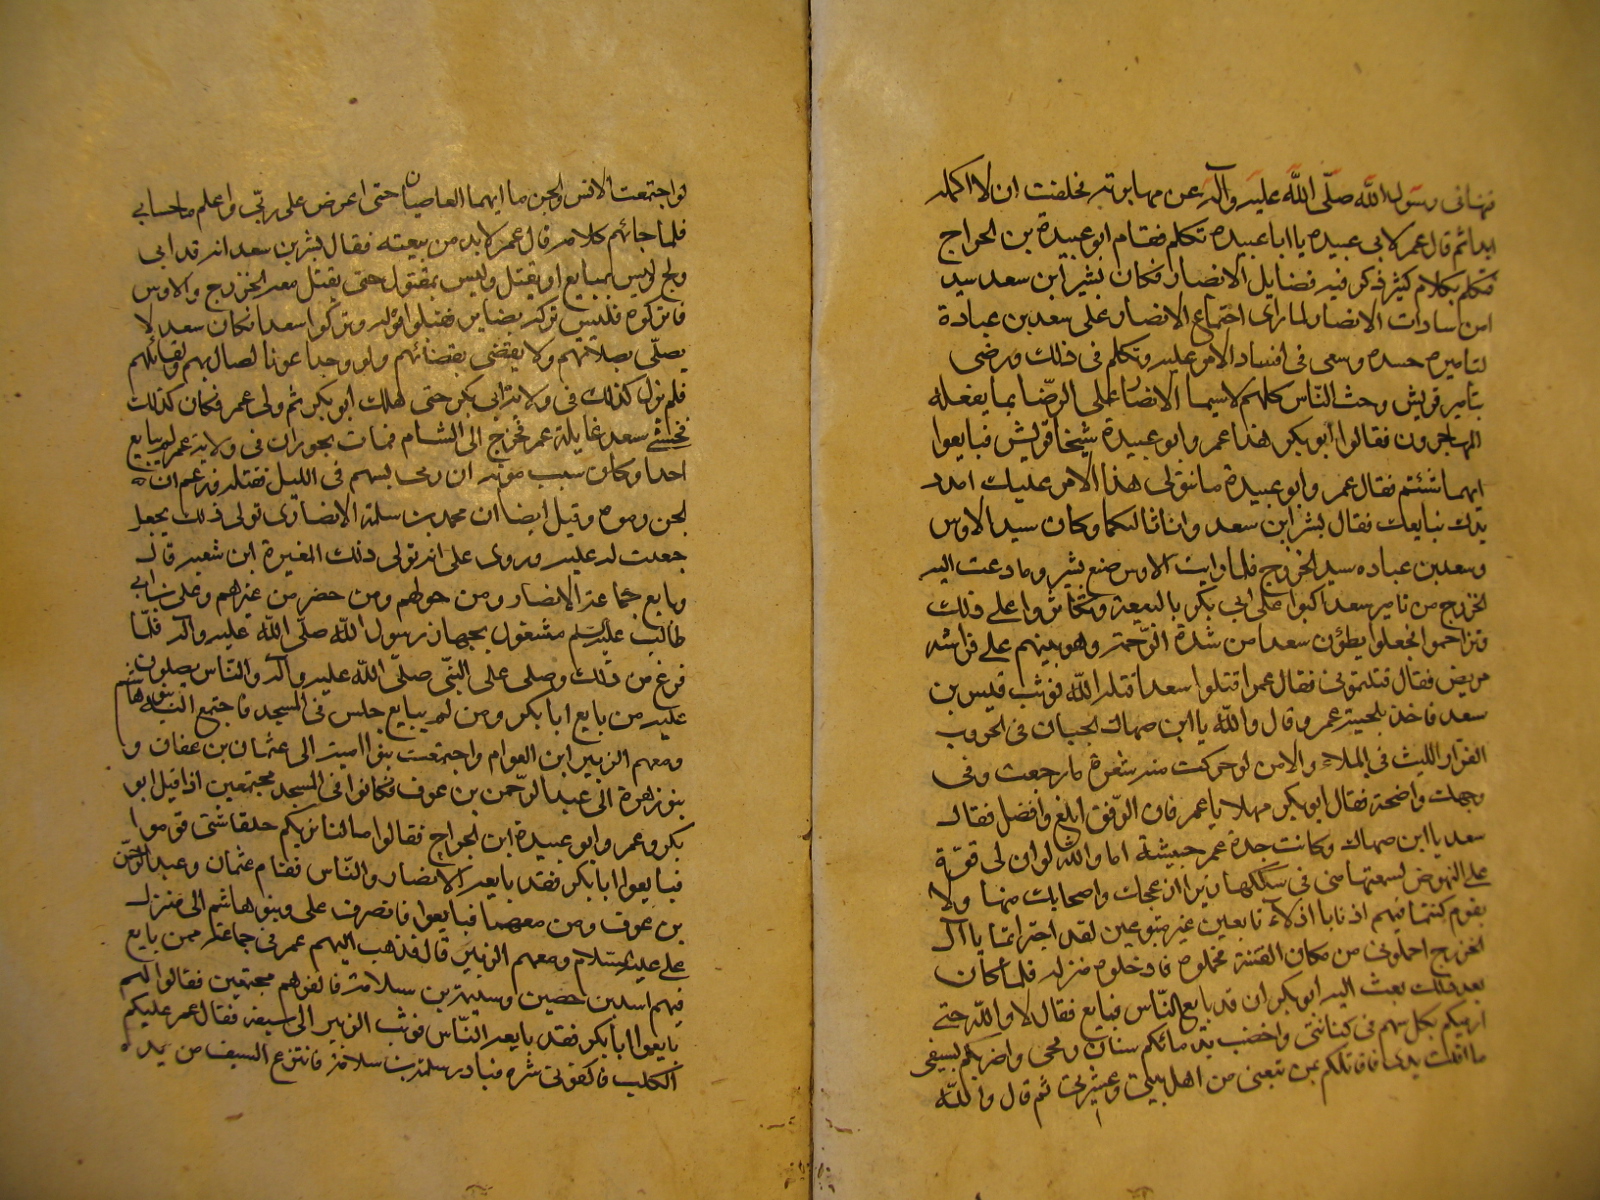 فنهاني رسول الله صلّى الله عليه وآله عن مهاجرته فحلفت ان لا اكلمه
ابدا ثم قال عمر لابي عبيدة يا ابا عبيده تكلم فقام ابو عبيدة بن الجراح
فتكلم بكلام كثير ذكر فيه فضايل الانصار فكان بشير ابن سعد سيد
من سادات الانصار لما راى اجتماع الانصار على سعد بن عبادة
لتاميره حسده وسعى فى افساد الامر عليه وتكلم فى ذلك ورضى
بتامير قريش وحث النّاس كلهم لاسيما الانصار على الرضا بما يفعله
المهاجرون فقالوا ابو بكر هذا عمر وابو عبيدة شيخا قريش فبايعوا
ايهما شئتم فقال عمر وابو عبيدة ما نتولى هذا الامر عليك امدد
يدك نبايعك فقال بشر ابن سعد وانا ثالثكما وكان سيد الاوس
وسعد بن عباده سيد الخزرج فلما رايت الاوس صنع بشير وما دعت اليه
الخزرج من تامير سعد اكبوا على ابي بكر بالبيعة وتكاثروا على ذلك
وتزاحموا فجعلوا يطؤن سعدا من شدة الزّحمة وهو بينهم على فراشه
مريض فقال قتلتموني فقال عمر اقتلوا سعدا قتله الله فوثب قيس بن
سعد فاخذ بلحية عمر وقال والله يا ابن صهاك الجبان فى الحروب
الفرّار الليث فى الملاء والامن لو حركت منه شعرة ما رجعت وفى
وجهك واضحة فقال ابو بكر مهلا يا عمر فان الرّفق ابلغ وافضل فقال
سعد يا ابن صهاك وكانت جدة عمر حبيشة اما والله لو ان لى قوّة
على النهوض لسمعتها منى فى سككها زئيرا ازعجك واصحابك منها ولا
بقوم كنتما فيهم اذنابا اذلاء تابعين غير متبوعين لقد اجترأتما يا آل
الخزرج احملونى من مكان الفتنة فحملوه فادخلوه منزله فلما كان
بعد ذلك بعث اليه ابو بكر ان قد بايع النّاس فبايع فقال لا والله حتى
ارميكم بكل سهم فى كنانتى واخضب بدمائكم سنان رمحى واضربكم بسيفى
ما اقلت يدى فاقاتلكم بمن تبعنى من اهل بيتى وعشيرتى ثم قال والله
لو اجتمعت الانس والجن ما ايهما العاصيان حتى اعرض على ربّى واعلم ما حسابي
فلما جائهم كلامه قال عمر لا بد من بيعته فقال بشر بن سعد انه قد ابى
ولج وليس بمبايع او يقتل وليس بمقتول حتى يقتل معه الخزرج والاوس
فاتركوه فليس تركه بضاير فقبلوا قوله وتركوا سعدا فكان سعد لا
يصلّى بصلاتهم ولا يقضى بقضائهم ولو وجد اعونا لصال بهم ولقاتلهم
فلم يزل كذلك فى ولاية ابى بكر حتى هلك ابو بكر ثم ولى عمر فكان كذلك
فخشى سعد غايلة عمر فخرج الى الشام فمات بحوران فى ولاية عمر لم يبايع
احدا وكان سبب موته ان رمى بسهم فى الليل فقتله فزعم ان
الجن رموه وقيل ايضا ان محمد بن سلمة الانصارى تولى ذلك بجعل
جعلت له عليه وروى على انه تولى ذلك المغيرة ابن شعبه قال
وبايع جماعة الانصار ومن حولهم ومن حضر من غيرهم وعلى بن ابي
طالب عليه السّلم مشغول بجهاز رسول الله صلّى الله عليه وآله فلمّا
فرغ من ذلك وصلى على النّبى صلّى الله عليه وآله والنّاس يصلون
عليه من بايع ابا بكر ومن لم يبايع جلس فى المسجد فاجتمع اليه بنو هاشم
ومعهم الزبير ابن العوام واجتمعت بنو امية الى عثمان بن عفان و
بنو زهرة الى عبد الرّحمن بن عوف فكانوا فى المسجد مجتمعين اذ اقبل ابو
بكر وعمر وابو عبيدة ابن الجراح فقالوا ما لنا نريكم حلقا شتى قوموا
فبايعوا ابا بكر فقد بايعه الانصار والنّاس فقام عثمان وعبد الرّحمن
بن عوف ومن معهما فبايعوا فانصرف على وبنو هاشم الى منزل
على عليه السّلام ومعهم الزبير قال فذهب اليهم عمر فى جماعة ممن بايع
فيهم اسد بن حصين وسلمة بن سلامة فالفوهم مجتمعين فقالوا لهم
بايعوا ابا بكر فقد بايعه النّاس فوثب الزبير الى سيفه فقال عمر عليكم
الكلب فاكفونى شره فبادر سلمة بن سلامة فانتزع السيف من يده